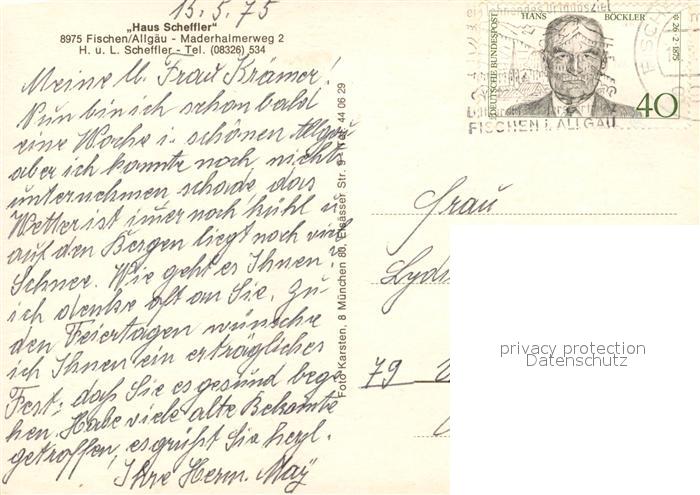 15.5.75
„Haus Scheffler"
8975 Fischen/Allgäu - Maderhalmerweg 2
H. u. L. Scheffler - Tel. (08326) 534
Meine lb. Frau Krämer!
Nun bin ich schon bald
eine Woche i. schönen Allgäu
aber ich konnte noch nichts
unternehmen schade, das
Wetter ist immer noch kühl u.
auf den Bergen liegt noch viel
Schnee. Wie geht es Ihnen?
ich denke oft an Sie. Zu
den Feiertagen wünsche
ich Ihnen ein erträgliches
Fest, daß Sie es gesund bege-
hen. Habe viele alte Bekannte
getroffen, es grüßt Sie herzl.
Ihre Herm. May
Foto Karsten, 8 München 80, Elsässer Str. 9 Tel. 44 06 29
DEUTSCHE BUNDESPOST
HANS BÖCKLER
* 26.2.1875
40
Urlaubsziel
FISCHEN I. ALLGÄU
FISCH
Frau
79
privacy protection
Datenschutz